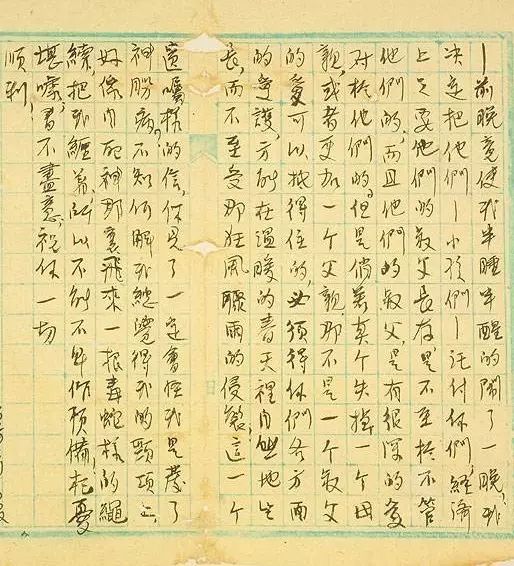 —前晚竟使我半睡半醒的鬧了一晚，我
决定把他們—小孩們—託付你們，經濟
上只要他們的叔父長存是不至於不管
他們的，而且他們的叔父，是有很深的愛
對於他們的。但是倘若真个失掉一个母
親，或者更加一个父親，那不是一个叔父
的愛可以抵得住的，必須得你們各方面
的愛護，方能在溫暖的青天裡自然地生
長，而不至受那狂風驟雨的侵襲，這一个
遺囑樣的信，你見了一定會怪我是發了
神經病，不知何解我總覺得我的頸項上，
好像自死神那裏飛來一根毒蛇樣的繩
索，把我纏着，所以不能不早作預備，杞憂
堪嗤，書不盡意，祝你一切
順利，